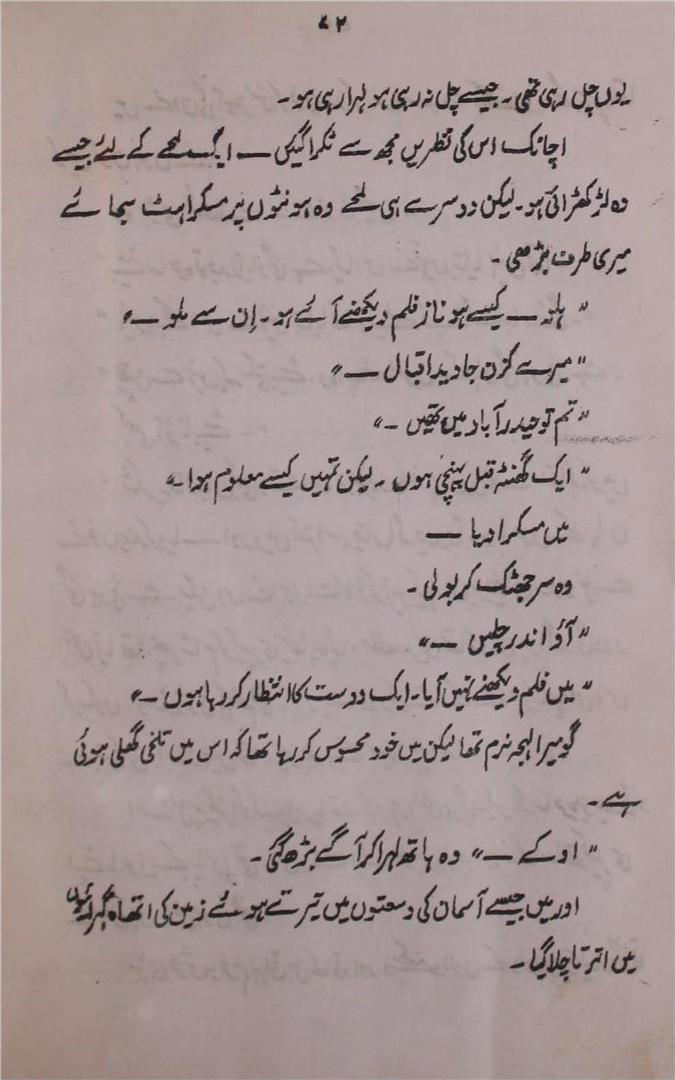 ۷۲
یوں چل رہی تھی۔ جیسے چل نہ رہی ہو لہرا رہی ہو۔
اچانک اس کی نظریں مجھ سے ٹکرا گئیں — ایک لمحے کے لئے جیسے
وہ لڑکھڑائی ہو۔ لیکن دوسرے ہی لمحے وہ ہونٹوں پر مسکراہٹ سجائے
میری طرف بڑھی۔
"ہلو — کیسے ہو ناز فلم دیکھنے آئے ہو۔ اِن سے ملو —"
"میرے کزن جاوید اقبال —"
"تم تو حیدرآباد میں تھیں۔"
"ایک گھنٹہ قبل پہنچی ہوں۔ لیکن تمہیں کیسے معلوم ہوا۔"
میں مسکرا دیا —
وہ سر جھٹک کر بولی۔
"آؤ اندر چلیں —"
"میں فلم دیکھنے نہیں آیا۔ ایک دوست کا انتظار کر رہا ہوں —"
گو میرا لہجہ نرم تھا لیکن میں خود محسوس کر رہا تھا کہ اس میں تلخی گھلی ہوئی
ہے۔
"اوکے —" وہ ہاتھ لہرا کر آگے بڑھ گئی۔
اور میں جیسے آسمان کی وسعتوں میں تیرتے ہوئے زمین کی اتھاہ گہرائیوں
میں اترتا چلا گیا۔